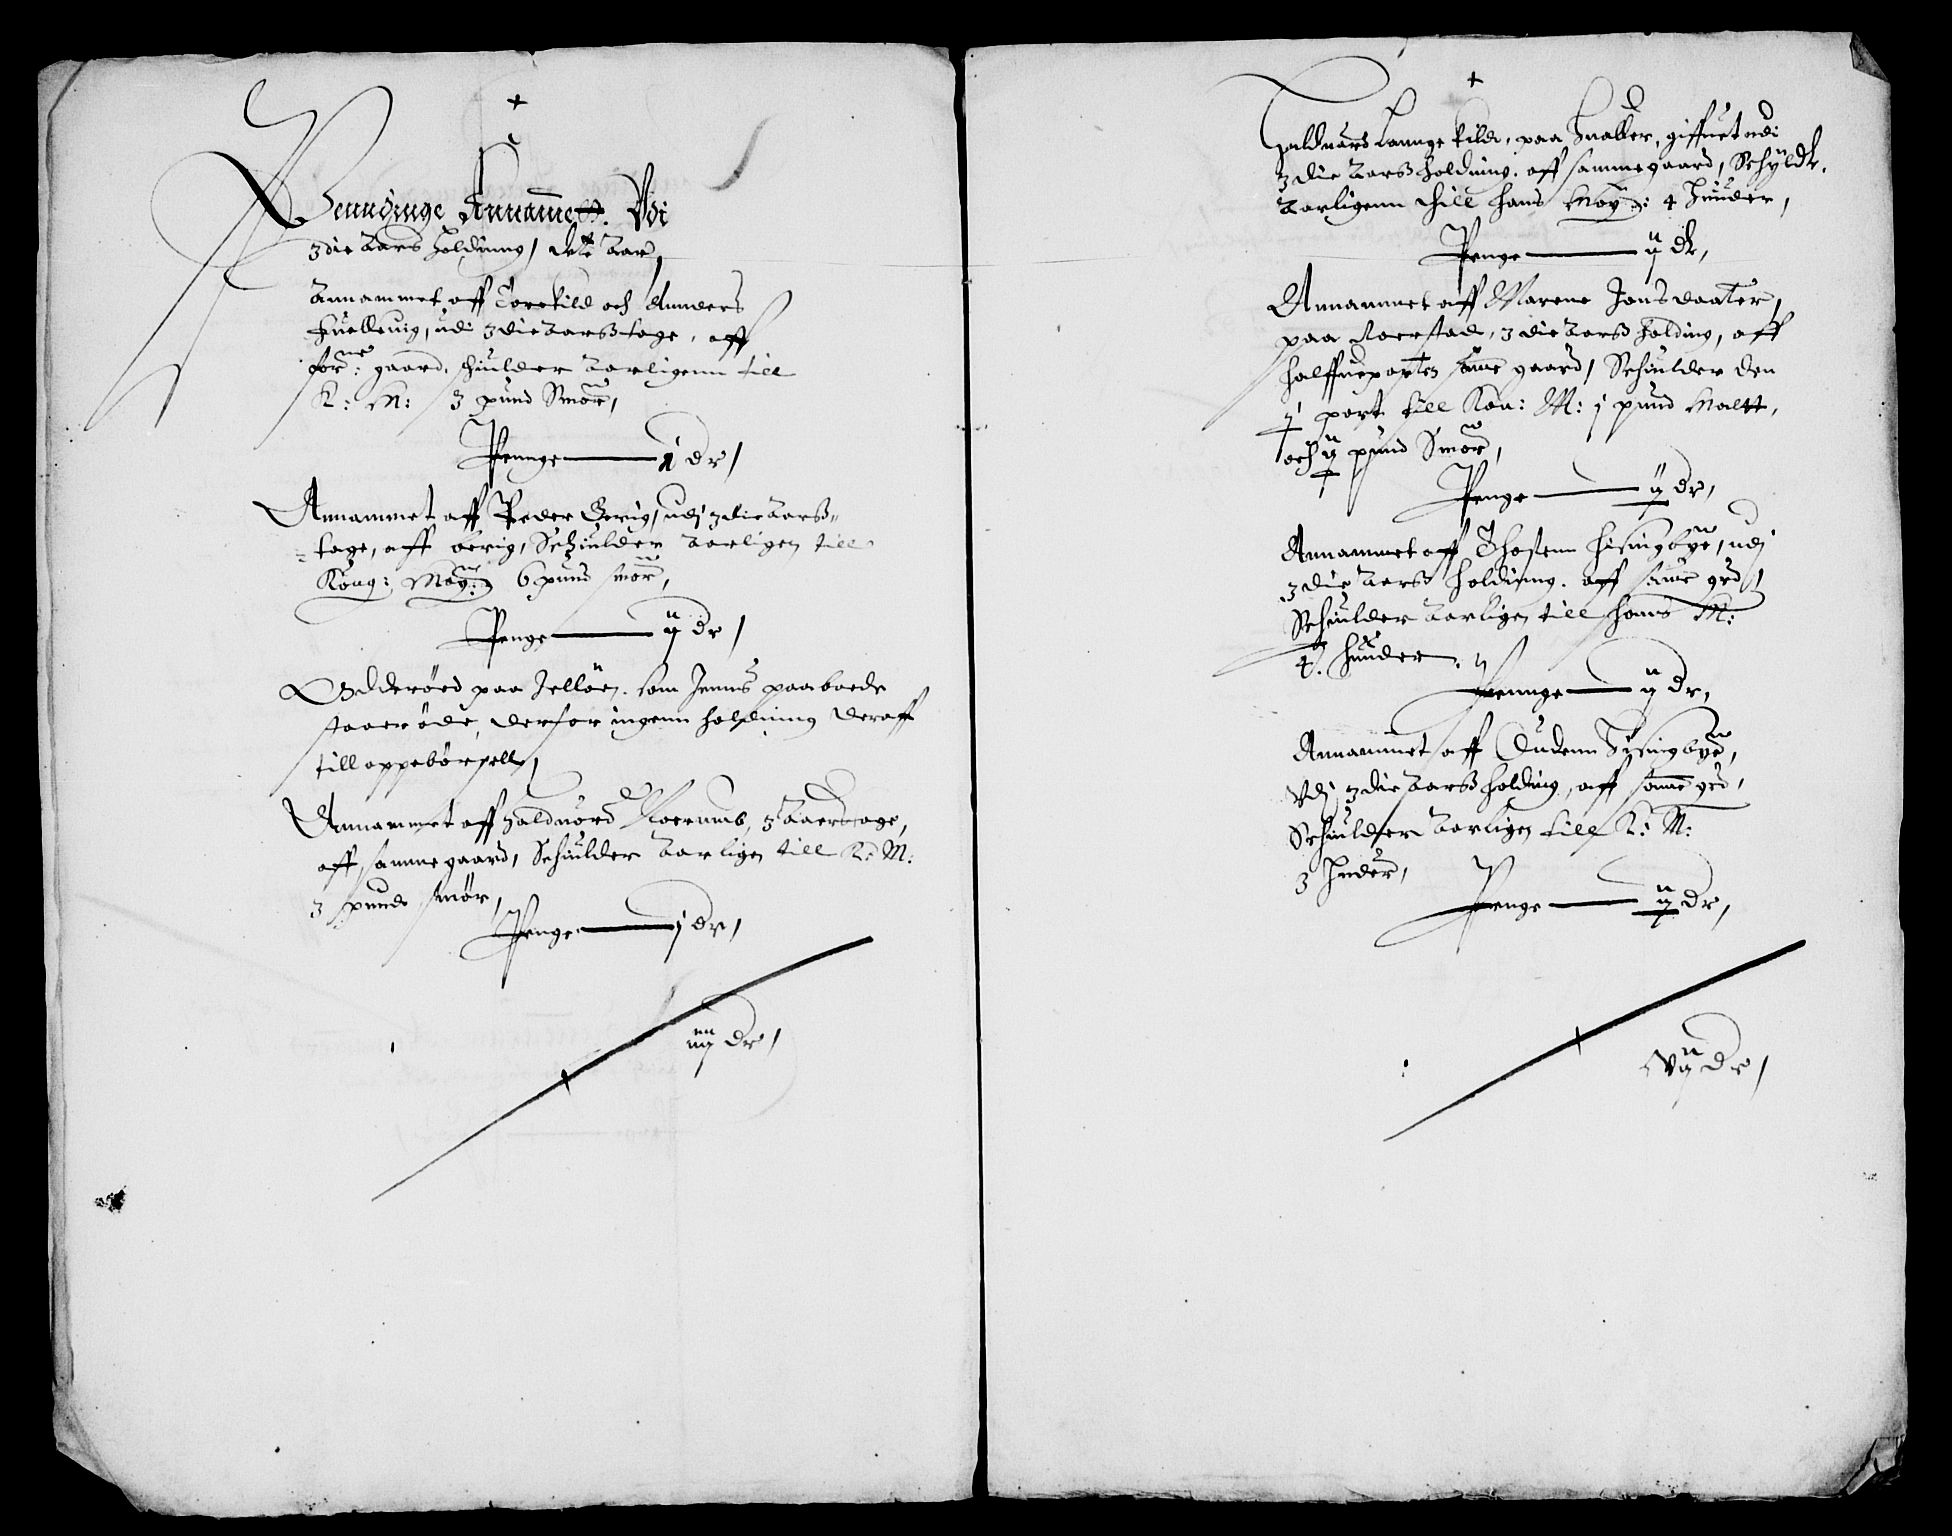 +
Penndinge Annammett. Vdi
3die Aars holdning, dette Aar,
Annammet aff Torekild och Anders
huelleuig, udi 3die Aarß tage, aff
forne: gaard, schiulder Aarligenn till
K: M: 3 pund Smør,
Pennge — 1 dr,
Annammet aff Peder Berig, udj 3die Aarß-
tage, aff berig, Schiulder Aarligen till
Kong: May: 6 pund smør,
Penge — ij dr,
Odderøed paa Jelløen, som Jenns paaboede
staaer øde, derfor ingenn holdning deraff
till oppebørsell,
Annammet aff Haldnord Roerumb, 3 Aaerstage,
aff samme gaard, Schiulder Aarligen till K: M:
3 pund smør,
Penge — j dr,
iiij dr,
+
Haluord Lannge kild, paa Hualler, giffuet udi
3die Aarß holdning, aff samme gaard, Schyldr.
Aarligenn thill hans May: 4 Huuder,
Penge — ij dr,
Annammet aff Marene Jonsdaater,
paa Roerstad, 3die Aarß holding, aff
halffueparten samme gaard, Schiulder den
part till Kon: M: j pund Maltt,
och pund Smør,
Penge — ij dr,
Annammet aff Thostenn hisingbye, udj
3die Aarß holdinng, aff samme grd,
Schiulder Aarligen till hans M:
4 huuder,
Pennge — ij dr,
Annammet aff Oudenn Hisingbye,
Vdj 3die Aarß holding, aff samme grd,
Schiulder Aarligen till K: M:
3 Huder,
Penge — ij dr,
Vij dr,